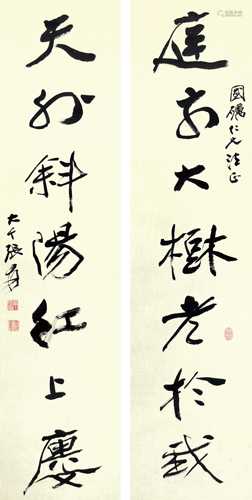 國礪仁兄法正
庭前大樹老於我
天外斜陽紅上慶
大千張爰